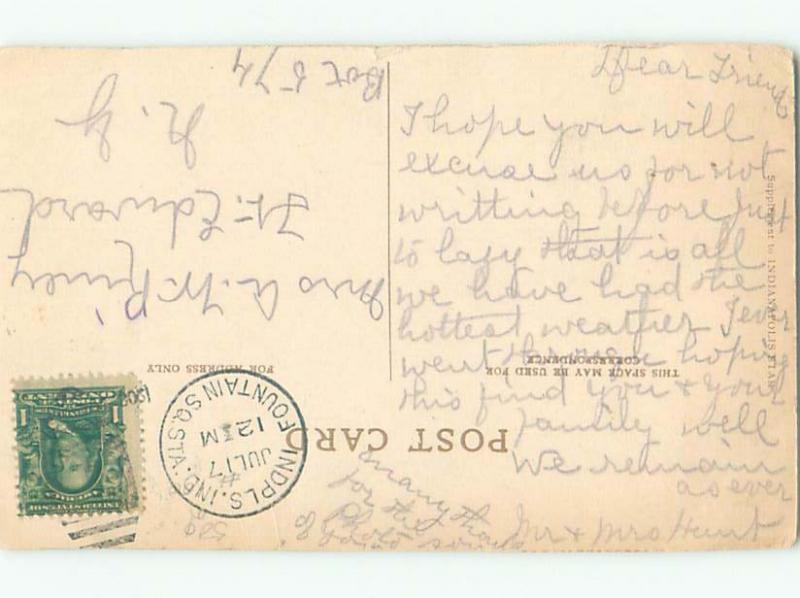 Dear Friend
I hope you will
excuse us for not
writting before just
to lazy that is all
we have had the
hottest weather I ever
went through hoping
this find you & your
family well
We remain
as ever
Mr & Mrs Hunt
many thanks
for the
Photo
Mrs A. McKiney
Ft. Edward
N. Y.
Box 574
POST CARD
THIS SPACE MAY BE USED FOR
CORRESPONDENCE
FOR ADDRESS ONLY
Supplement to INDIANAPOLIS STAR
INDPLS. IND. FOUNTAIN SQ. STA.
JUL 17
12 M
1